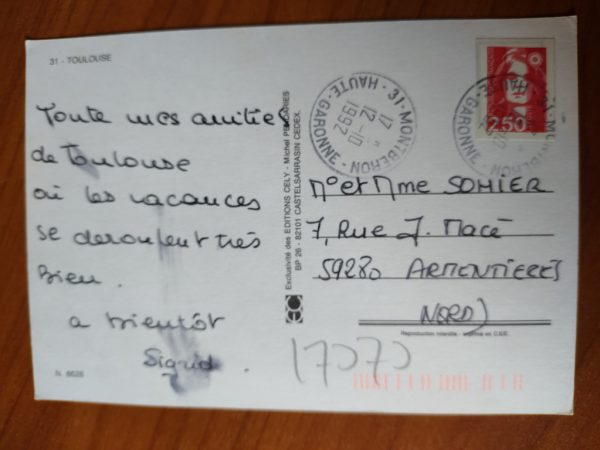 31 - TOULOUSE
Toute mes amitiés
de Toulouse
où les vacances
se deroulent très
bien.
a bientôt
Sigrid.
N 6626
Exclusivité des EDITIONS CELY - Michel
BP 26 - 82101 CASTELSARRASIN CEDEX.
31-MONTBERON
HAUTE-GARONNE
17
12-10
1992
2,50
Mr et Mme SOHIER
7, Rue J. Macé
59280 ARMENTIERES
(NORD)
Reproduction interdite - Imprimé en C.E.E.
17070